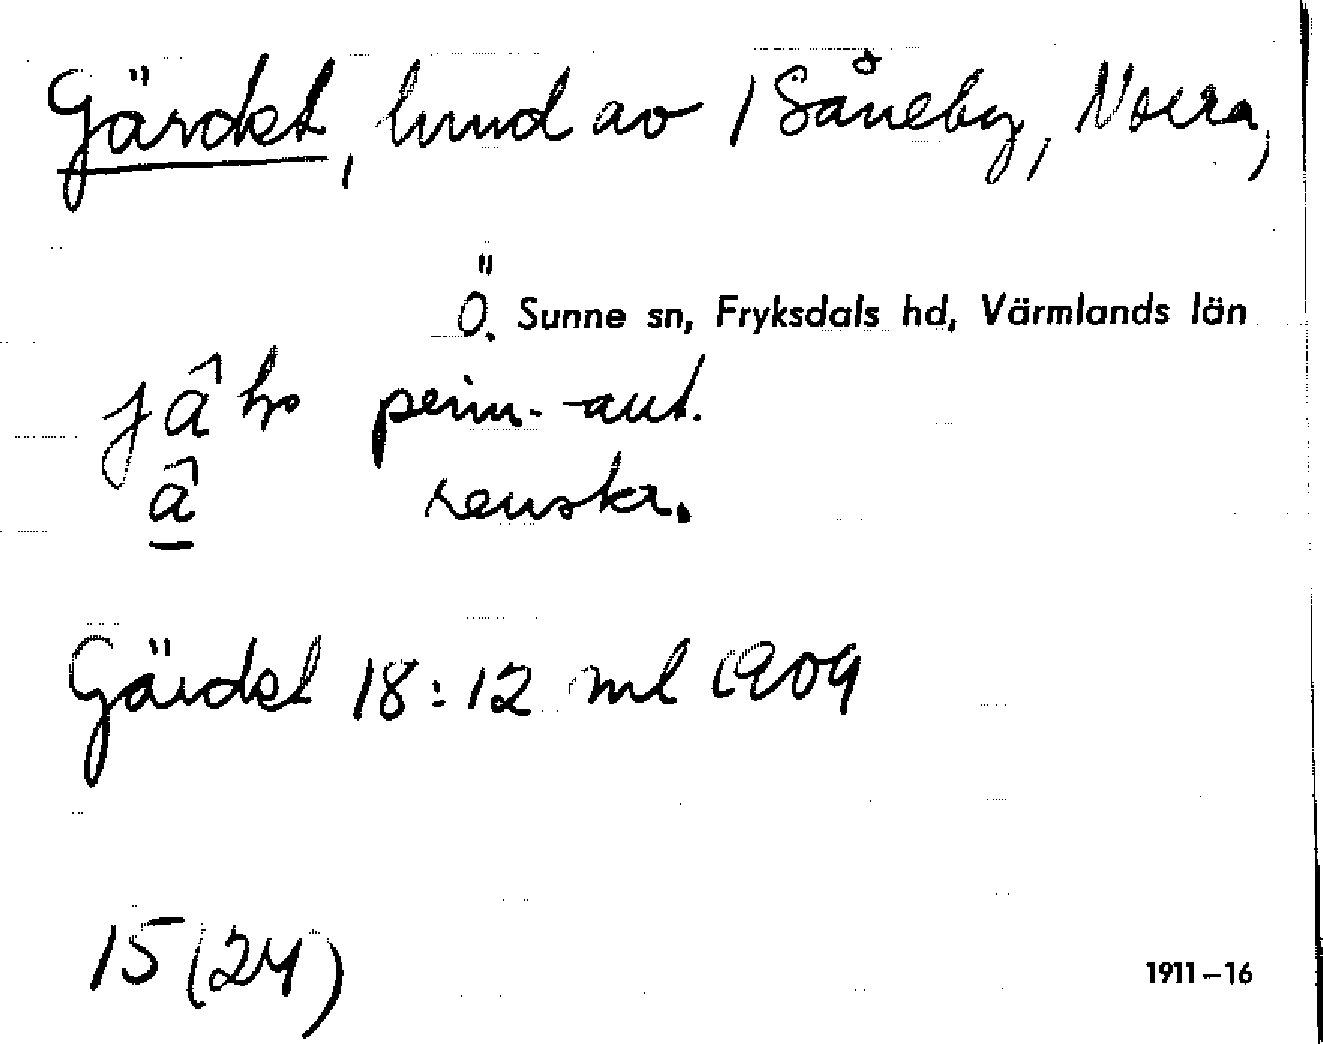 Gärdet, hmd av 1 Såneby, Norra,
Ö. Sunne sn, Fryksdals hd, Värmlands län
jâ penn.-ant.
â renskr.
Gärdet 18:12 ml 1909
15 (24)
1911–16